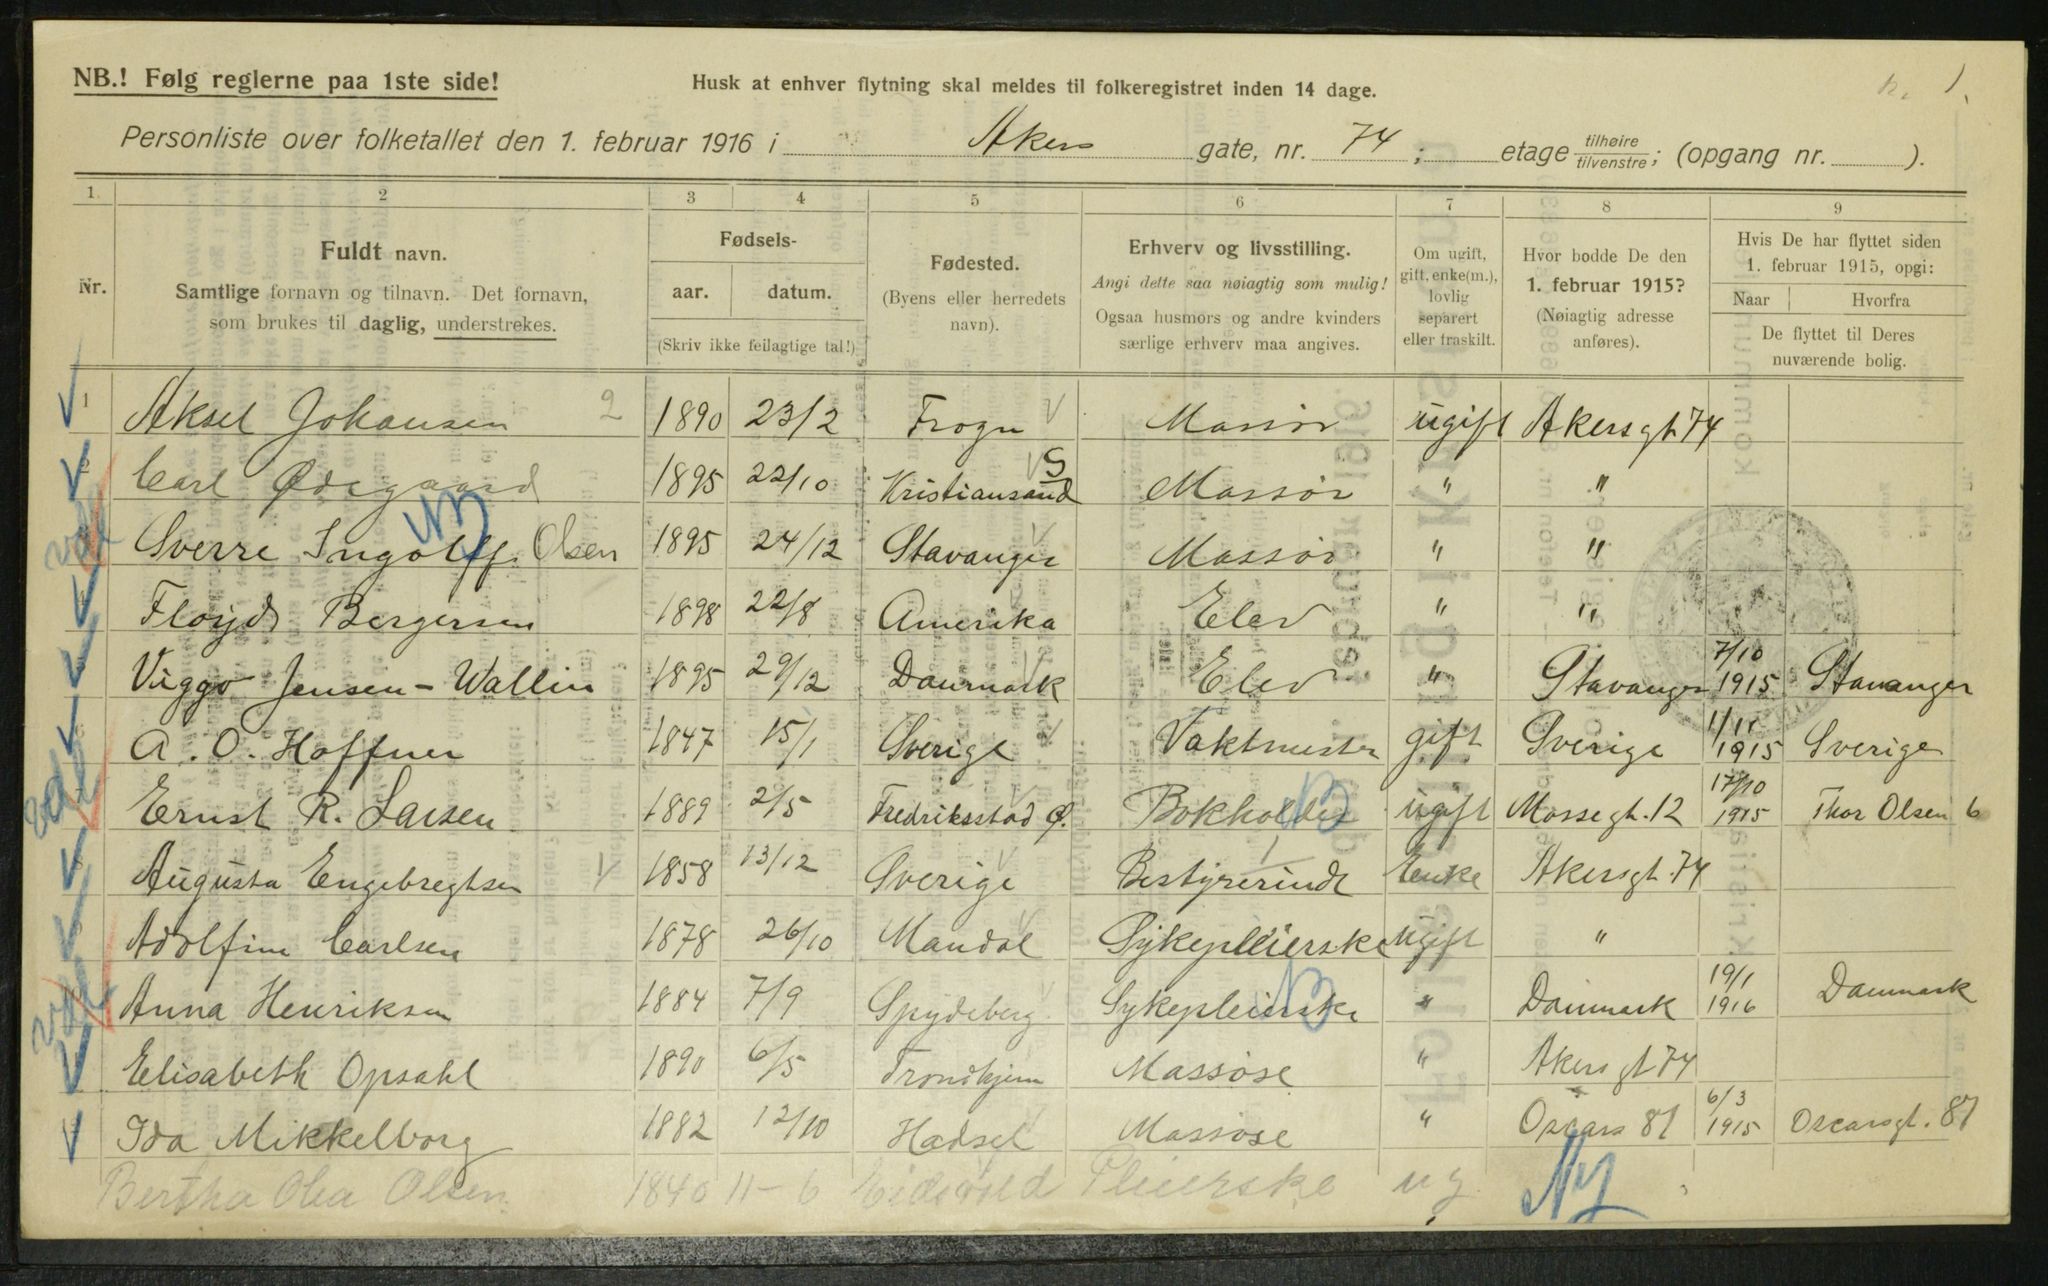 NB.! Følg reglerne paa 1ste side!
Husk at enhver flytning skal meldes til folkeregistret inden 14 dage.
Personliste over folketallet den 1. februar 1916 i Akers gate, nr. 74; etage tilhøire/tilvenstre; (opgang nr. ).
1. 2 3 4 5 6 7 8 9
Nr.
Fuldt navn.
Samtlige fornavn og tilnavn. Det fornavn, som brukes til daglig, understrekes.
Fødsels-
aar. datum.
(Skriv ikke feilagtige tal!)
Fødested.
(Byens eller herredets navn).
Erhverv og livsstilling.
Angi dette saa nøiagtig som mulig!
Ogsaa husmors og andre kvinders særlige erhverv maa angives.
Om ugift, gift, enke(m.), lovlig separert eller fraskilt.
Hvor bodde De den 1. februar 1915?
(Nøiagtig adresse anføres).
Hvis De har flyttet siden 1. februar 1915, opgi:
Naar Hvorfra
De flyttet til Deres nuværende bolig.
1 Aksel Johansen 2 1890 23/2 Frogn Massør ugift Akersgt 74
2 Carl Ødegaard 1895 22/10 Kristiansand S Massør " "
Sverre Ingolff Olsen 1895 24/12 Stavanger Massør " "
Floyd Bergersen 1898 22/8 Amerika Elev " "
Viggo Jensen-Wallin 1895 29/12 Danmark Elev " Stavanger 7/10 1915 Stavanger
A. O. Hoffner 1847 15/1 Sverige Vaktmester gift Sverige 1/11 1915 Sverige
Ernst R. Larsen 1889 2/5 Fredriksstad Ø. Bokholder ugift Mossegt. 12 17/10 1915 Thor Olsen 6
Augusta Engebregtsen 1 1858 13/12 Sverige Bestyrerinde Enke Akersgt. 74
Adolfine Carlsen 1878 26/10 Mandal Sykepleierske ugift "
Anna Henriksen 1884 7/9 Spydeberg Sykepleierske " Danmark 19/1 1916 Danmark
Elisabeth Opsahl 1890 6/5 Trondhjem Massøse " Akersgt 74
Ida Mikkelborg 1882 12/10 Hadsel Massøse " Oscars 81 6/3 1915 Oscarsgt. 81
Bertha Olea Olsen 1840 11-6 Eidsvold Pleierske ug Ny